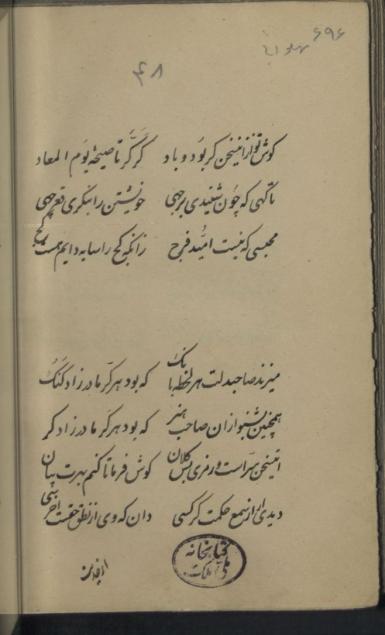 ۶۹۶
۴۸
گوش تو زاینسخن کر بود و باد کر کر تا صیحهٔ یوم المعاد
تا که چون شنیدی برجهی خویشتن را بنگری قعر چهی
محبسی که نیست امید فرح زانکه کج را سایه دایم هست کج
میزند صاحبدلت هر لحظه بانک که بود هر کر مادرزاد گنگ
همچنین بشنو از آن صاحب هنر که بود هر کر مادرزاد کر
اینسخن سر است و رمزی بس کلان گوش فرما تا کنم بهرت بیان
دیدی ار از سمع حکمت کر کسی دان که وی از نطق حقست اخرسی
کتابخانه
ملی ملک